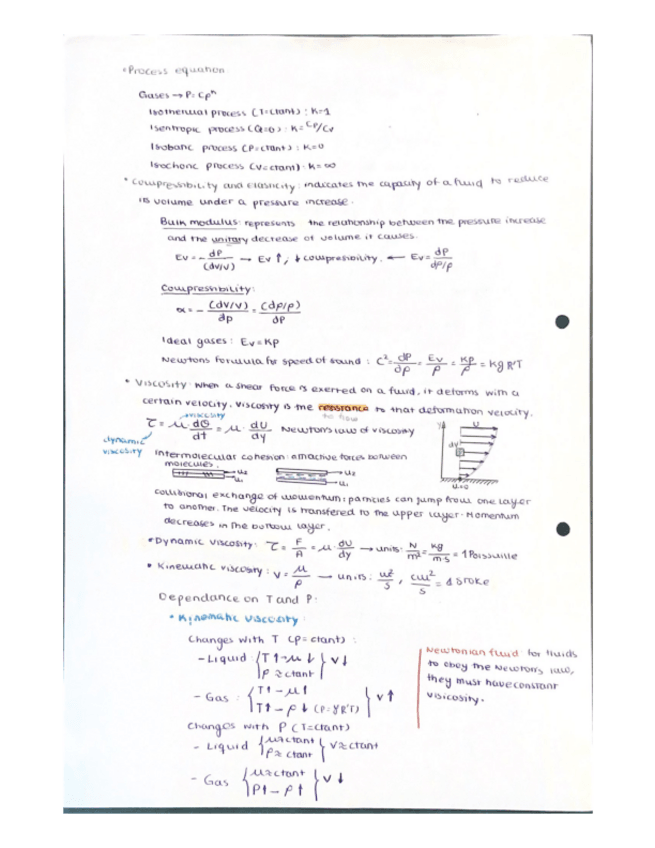 • Process equation
Gases → P = Cρⁿ
Isothermal process (T=ctant) : K=1
Isentropic process (Q=0) : K = Cp/Cv
Isobaric process (P=ctant) : K=0
Isochoric process (V=ctant) : K=∞
• Compressibility and elasticity: indicates the capacity of a fluid to reduce
its volume under a pressure increase.
Bulk modulus: represents the relationship between the pressure increase
and the unitary decrease of volume it causes.
Ev = - dP/(dV/V) → Ev ↑, ↓ compressibility. ← Ev = dP/dρ/ρ
Compressibility:
α = - (dV/V)/dp = (dρ/ρ)/dP
Ideal gases: Ev = KP
Newtons formula for speed of sound : C² = dP/dρ = Ev/ρ = KP/ρ = KgR'T
• Viscosity: when a shear force is exerted on a fluid, it deforms with a
certain velocity. Viscosity is the resistance to that deformation velocity.
to flow
viscosity
τ = μ · dθ/dt = μ · dU/dy Newton's law of viscosity
dynamic viscosity
y U
dy
u=0
Intermolecular cohesion: attractive forces between
molecules.
u₂ u₂
u₁ u₁
Collisional exchange of momentum: particles can jump from one layer
to another. The velocity is transfered to the upper layer. Momentum
decreases in the bottom layer.
• Dynamic viscosity: τ = F/A = μ · dU/dy → units: N/m² = kg/m·s = 1 Poiseuille
• Kinematic viscosity: ν = μ/ρ → units: m²/s , cm²/s = 1 stoke
Dependance on T and P:
• Kinematic viscosity:
Changes with T (P=ctant) :
- Liquid { T↑ - μ ↓ } ν ↓
ρ ≈ ctant
- Gas : { T↑ - μ↑ } ν ↑
T↑ - ρ ↓ (P=γR'T)
Changes with P (T=ctant)
- Liquid { μ≈ctant } ν≈ctant
ρ≈ctant
- Gas { μ≈ctant } ν ↓
P↑ - ρ ↑
Newtonian fluid: for fluids
to obey the Newton's law,
they must have constant
visicosity.